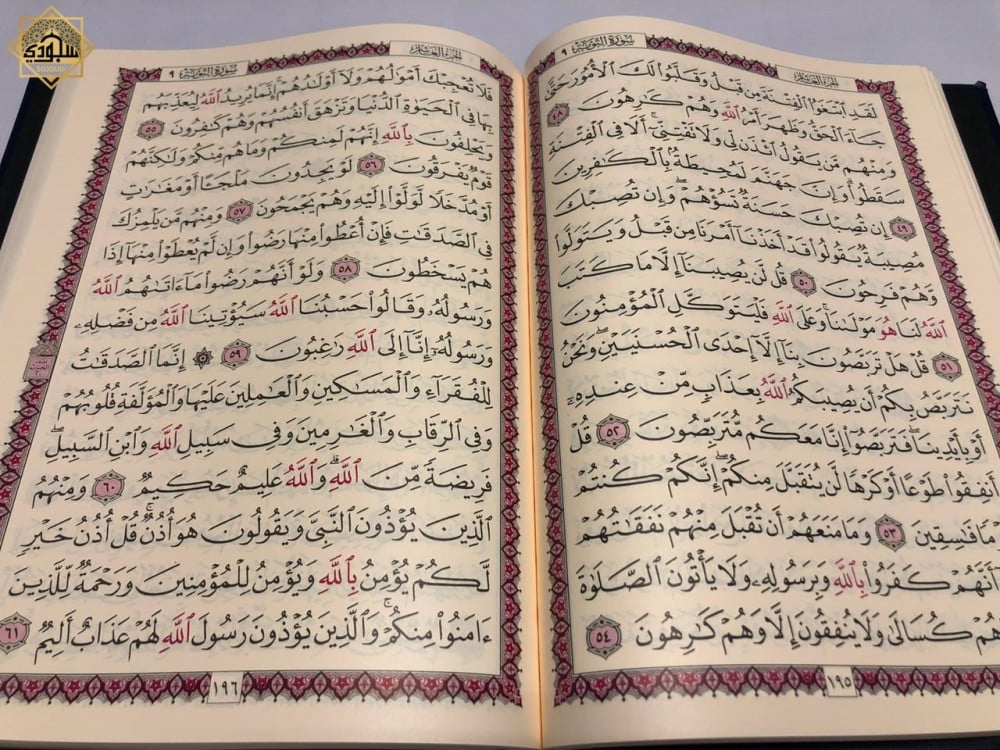 سجودي
SOJOUDI
سورة التوبة ٩
الجزء العاشر
لَقَدِ ٱبْتَغَوُا۟ ٱلْفِتْنَةَ مِن قَبْلُ وَقَلَّبُوا۟ لَكَ ٱلْأُمُورَ حَتَّىٰ
جَآءَ ٱلْحَقُّ وَظَهَرَ أَمْرُ ٱللَّهِ وَهُمْ كَٰرِهُونَ ٤٨
وَمِنْهُم مَّن يَقُولُ ٱئْذَن لِّى وَلَا تَفْتِنِّىٓ ۚ أَلَا فِى ٱلْفِتْنَةِ
سَقَطُوا۟ ۗ وَإِنَّ جَهَنَّمَ لَمُحِيطَةٌۢ بِٱلْكَٰفِرِينَ
٤٩ إِن تُصِبْكَ حَسَنَةٌ تَسُؤْهُمْ ۖ وَإِن تُصِبْكَ
مُصِيبَةٌ يَقُولُوا۟ قَدْ أَخَذْنَآ أَمْرَنَا مِن قَبْلُ وَيَتَوَلَّوا۟
وَّهُمْ فَرِحُونَ ٥٠ قُل لَّن يُصِيبَنَآ إِلَّا مَا كَتَبَ
ٱللَّهُ لَنَا هُوَ مَوْلَىٰنَا ۚ وَعَلَى ٱللَّهِ فَلْيَتَوَكَّلِ ٱلْمُؤْمِنُونَ
٥١ قُلْ هَلْ تَرَبَّصُونَ بِنَآ إِلَّآ إِحْدَى ٱلْحُسْنَيَيْنِ ۖ وَنَحْنُ
نَتَرَبَّصُ بِكُمْ أَن يُصِيبَكُمُ ٱللَّهُ بِعَذَابٍ مِّنْ عِندِهِۦٓ
أَوْ بِأَيْدِينَا ۖ فَتَرَبَّصُوٓا۟ إِنَّا مَعَكُم مُّتَرَبِّصُونَ ٥٢ قُلْ
أَنفِقُوا۟ طَوْعًا أَوْ كَرْهًا لَّن يُتَقَبَّلَ مِنكُمْ ۖ إِنَّكُمْ كُنتُمْ
قَوْمًا فَٰسِقِينَ ٥٣ وَمَا مَنَعَهُمْ أَن تُقْبَلَ مِنْهُمْ نَفَقَٰتُهُمْ
إِلَّآ أَنَّهُمْ كَفَرُوا۟ بِٱللَّهِ وَبِرَسُولِهِۦ وَلَا يَأْتُونَ ٱلصَّلَوٰةَ
إِلَّا وَهُمْ كُسَالَىٰ وَلَا يُنفِقُونَ إِلَّا وَهُمْ كَٰرِهُونَ ٥٤
١٩٥
الجزء العاشر
سورة التوبة ٩
فَلَا تُعْجِبْكَ أَمْوَٰلُهُمْ وَلَآ أَوْلَٰدُهُمْ ۚ إِنَّمَا يُرِيدُ ٱللَّهُ لِيُعَذِّبَهُم
بِهَا فِى ٱلْحَيَوٰةِ ٱلدُّنْيَا وَتَزْهَقَ أَنفُسُهُمْ وَهُمْ كَٰفِرُونَ ٥٥
وَيَحْلِفُونَ بِٱللَّهِ إِنَّهُمْ لَمِنكُمْ وَمَا هُم مِّنكُمْ وَلَٰكِنَّهُمْ
قَوْمٌ يَفْرَقُونَ ٥٦ لَوْ يَجِدُونَ مَلْجَـًٔا أَوْ مَغَٰرَٰتٍ
أَوْ مُدَّخَلًا لَّوَلَّوْا۟ إِلَيْهِ وَهُمْ يَجْمَحُونَ ٥٧ وَمِنْهُم مَّن يَلْمِزُكَ
فِى ٱلصَّدَقَٰتِ فَإِنْ أُعْطُوا۟ مِنْهَا رَضُوا۟ وَإِن لَّمْ يُعْطَوْا۟ مِنْهَآ إِذَا
هُمْ يَسْخَطُونَ ٥٨ وَلَوْ أَنَّهُمْ رَضُوا۟ مَآ ءَاتَىٰهُمُ ٱللَّهُ
وَرَسُولُهُۥ وَقَالُوا۟ حَسْبُنَا ٱللَّهُ سَيُؤْتِينَا ٱللَّهُ مِن فَضْلِهِۦ
وَرَسُولُهُۥٓ إِنَّآ إِلَى ٱللَّهِ رَٰغِبُونَ ٥٩ ۞ إِنَّمَا ٱلصَّدَقَٰتُ
لِلْفُقَرَآءِ وَٱلْمَسَٰكِينِ وَٱلْعَٰمِلِينَ عَلَيْهَا وَٱلْمُؤَلَّفَةِ قُلُوبُهُمْ
وَفِى ٱلرِّقَابِ وَٱلْغَٰرِمِينَ وَفِى سَبِيلِ ٱللَّهِ وَٱبْنِ ٱلسَّبِيلِ ۖ
فَرِيضَةً مِّنَ ٱللَّهِ ۗ وَٱللَّهُ عَلِيمٌ حَكِيمٌ ٦٠ وَمِنْهُمُ
ٱلَّذِينَ يُؤْذُونَ ٱلنَّبِىَّ وَيَقُولُونَ هُوَ أُذُنٌ ۚ قُلْ أُذُنُ خَيْرٍ
لَّكُمْ يُؤْمِنُ بِٱللَّهِ وَيُؤْمِنُ لِلْمُؤْمِنِينَ وَرَحْمَةٌ لِّلَّذِينَ
ءَامَنُوا۟ مِنكُمْ ۚ وَٱلَّذِينَ يُؤْذُونَ رَسُولَ ٱللَّهِ لَهُمْ عَذَابٌ أَلِيمٌ ٦١
١٩٦